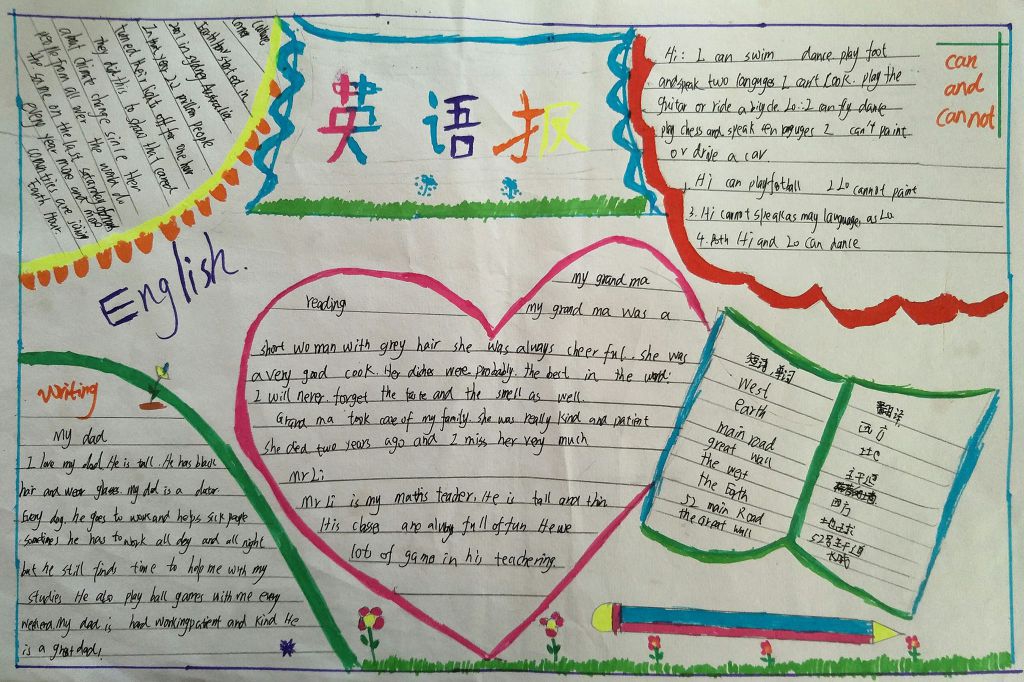 Culture
Corner
Earth Hour started in
2007 in sydney Australia
In that year 2.2 million people
turned their light off for one hour
they did this to show that cared
about climate change since then
people from all over the world do
the same on the last saturday of
every year more and more
countries are
Earth Hour.
英语报
Hi: I can swim dance play foot
and speak two languages I can't cook. play the
guitar or ride a bicycle Lo: I can fly dance
play chess and speak languages I can't paint
or drive a car
can
and
cannot
1. Hi can play football 2 Lo cannot paint
3. Hi cannot speak as may language, as Lo
4. Both Hi and Lo can dance
English.
reading
my grand ma
my grand ma was a
short wo man with grey hair she was always cheer ful.. she was
a very good cook. Her dishes were probably. the best in the world.
I will never forget the taste and the smell as well.
Grand ma took care of my family. she was really kind and patient
she died two years ago and I miss her very much
Mr Li
Mr Li is my maths teacher. He is tall and thin
His closes are alway full of fun He we
lots of game in his teachering.
writing
My dad
I love my dad. He is tall. He has black
hair and wear glases. my dad is a doctor.
Every day, he goes to work and helps sick people
sometimes he has to work all day and all night
but he still finds time to help me with my
studies He also play ball games with me every
my dad is hard working patient and kind He
is a great dad!
短语 单词
West
earth
main road
great wall
the west
the Earth
52 main Road
the Great wall
翻译
西方
主干道
西方
52号主干道
长城